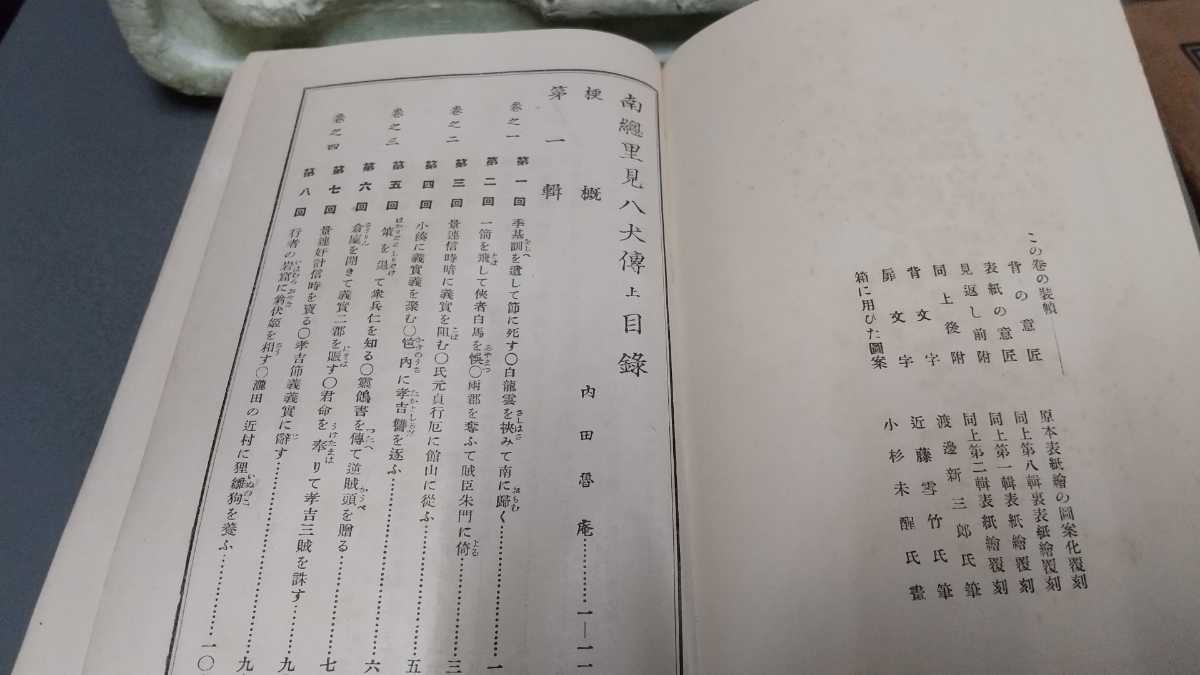 この巻の装幀
背の意匠 原本表紙繪の圖案化覆刻
表紙の意匠 同上第八輯裏表紙繪覆刻
見返し前附 同上第一輯表紙繪覆刻
同上後附 同上第二輯表紙繪覆刻
背文字 渡邊新三郎氏筆
扉文字 近藤雪竹氏筆
箱に用ひた圖案 小杉未醒氏畫
南總里見八犬傳 上 目錄
梗概 內田魯庵…………一―一一
第一輯
卷之一 第一回 季基訓を遺して節に死す〇白龍雲を挾みて南に歸く…………一
第二回 一箭を飛して俠者白馬を悞〇兩郡を奪ふて賊臣朱門に倚…………
卷之二 第三回 景連信時暗に義實を阻む〇氏元貞行厄に館山に從ふ…………三
第四回 小湊に義實義を聚む〇笆內に孝吉讐を逐ふ…………
卷之三 第五回 衆兵仁を知る〇靈鴿書を傳て逆賊頭を贈る…………六
第六回 倉廩を開きて義實二郡を賑す〇君命を奉りて孝吉三賊を誅す…………
卷之四 第七回 景連奸計信時を賣る〇孝吉節義義實に辭す…………九
第八回 行者の岩窟に翁伏姬を相す〇瀧田の近村に狸雛狗を養ふ…………一〇